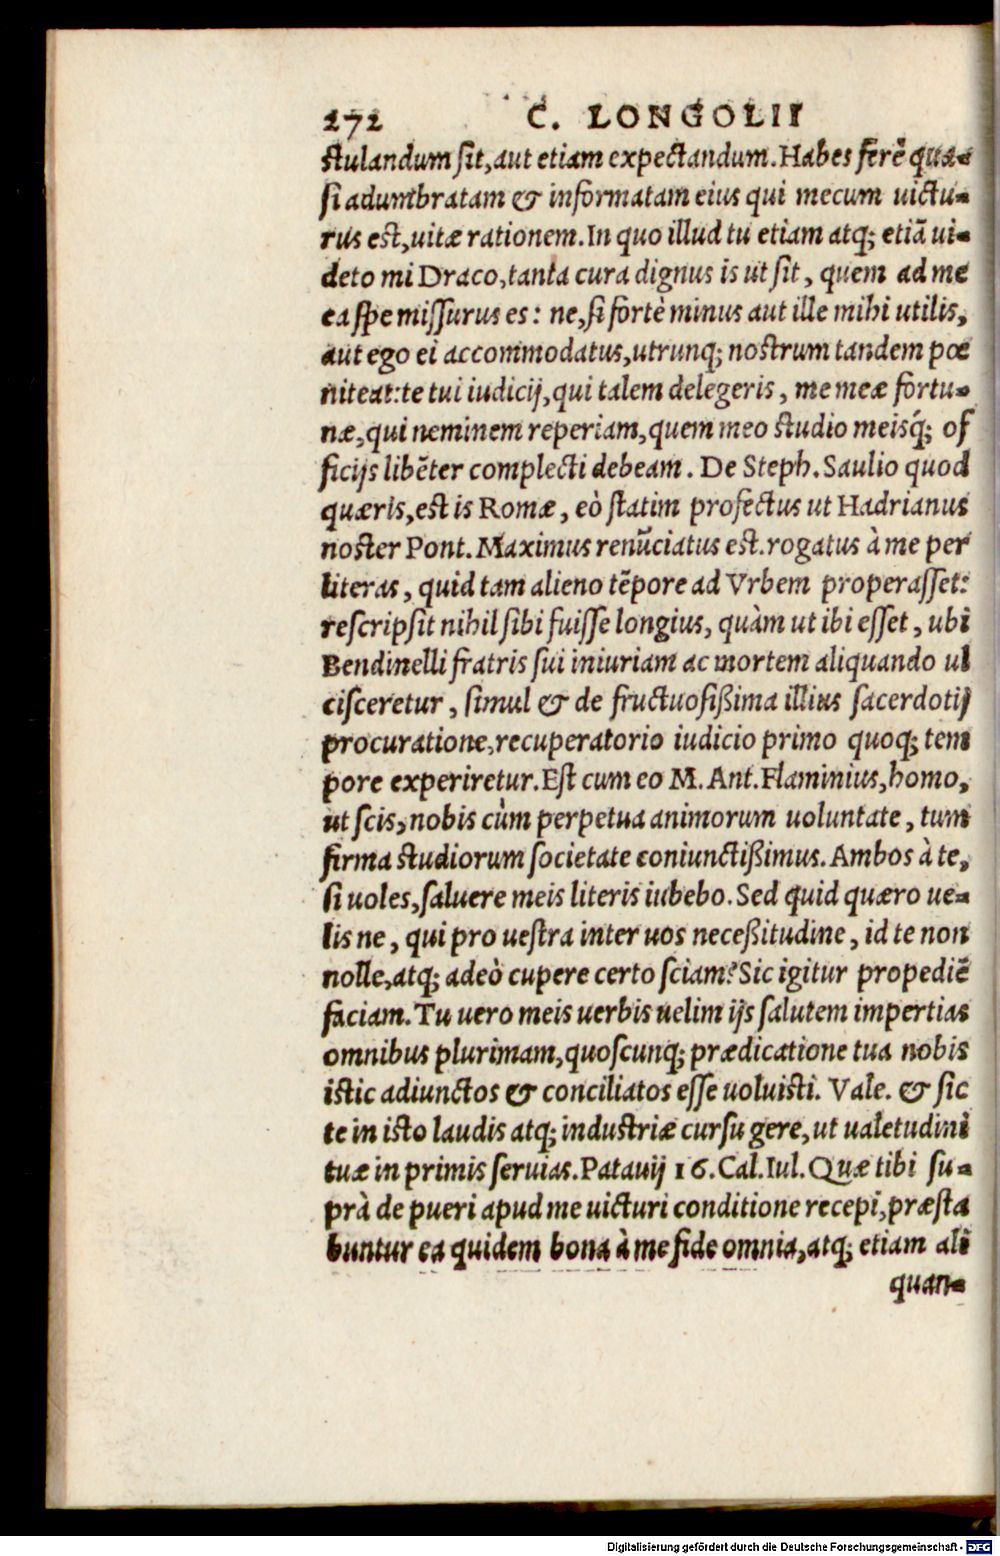 272 C. LONGOLII
stulandum sit, aut etiam expectandum. Habes ferè qua-
si adumbratam & informatam eius qui mecum uictu-
rus est, uitæ rationem. In quo illud tu etiam atq; etiã ui-
deto mi Draco, tanta cura dignus is ut sit, quem ad me
ea spe missurus es: ne, si fortè minus aut ille mihi utilis,
aut ego ei accommodatus, utrunq; nostrum tandem pœ
niteat: te tui iudicij, qui talem delegeris, me meæ fortu-
næ, qui neminem reperiam, quem meo studio meisq́; of
ficijs libẽter complecti debeam. De Steph. Saulio quod
quæris, est is Romæ, eò statim profectus ut Hadrianus
noster Pont. Maximus renũciatus est. rogatus à me per
literas, quid tam alieno tẽpore ad Vrbem properasset:
rescripsit nihil sibi fuisse longius, quàm ut ibi esset, ubi
Bendinelli fratris sui iniuriam ac mortem aliquando ul
cisceretur, simul & de fructuosißima illius sacerdotij
procuratione, recuperatorio iudicio primo quoq; tem
pore experiretur. Est cum eo M. Ant. Flaminius, homo,
ut scis, nobis cùm perpetua animorum uoluntate, tum
firma studiorum societate coniunctißimus. Ambos à te,
si uoles, saluere meis literis iubebo. Sed quid quæro ue-
lis ne, qui pro uestra inter uos neceßitudine, id te non
nolle, atq; adeò cupere certo sciam? Sic igitur propediẽ
faciam. Tu uero meis uerbis uelim ijs salutem impertias
omnibus plurimam, quoscunq; prædicatione tua nobis
istic adiunctos & conciliatos esse uoluisti. Vale. & sic
te in isto laudis atq; industriæ cursu gere, ut ualetudini
tuæ in primis seruias. Patauij 16. Cal. Iul. Quæ tibi su-
prà de pueri apud me uicturi conditione recepi, præsta
buntur ea quidem bona à me fide omnia, atq; etiam ali
quan-
Digitalisierung gefördert durch die Deutsche Forschungsgemeinschaft - DFG